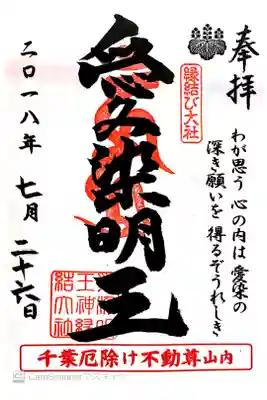 奉拝
縁結び大社
わが思う 心の内は 愛染の
深き願いを 得るぞうれしき
愛染明王
二〇一八年 七月 二十六日
千葉厄除け不動尊山内
CamScanner でスキャン